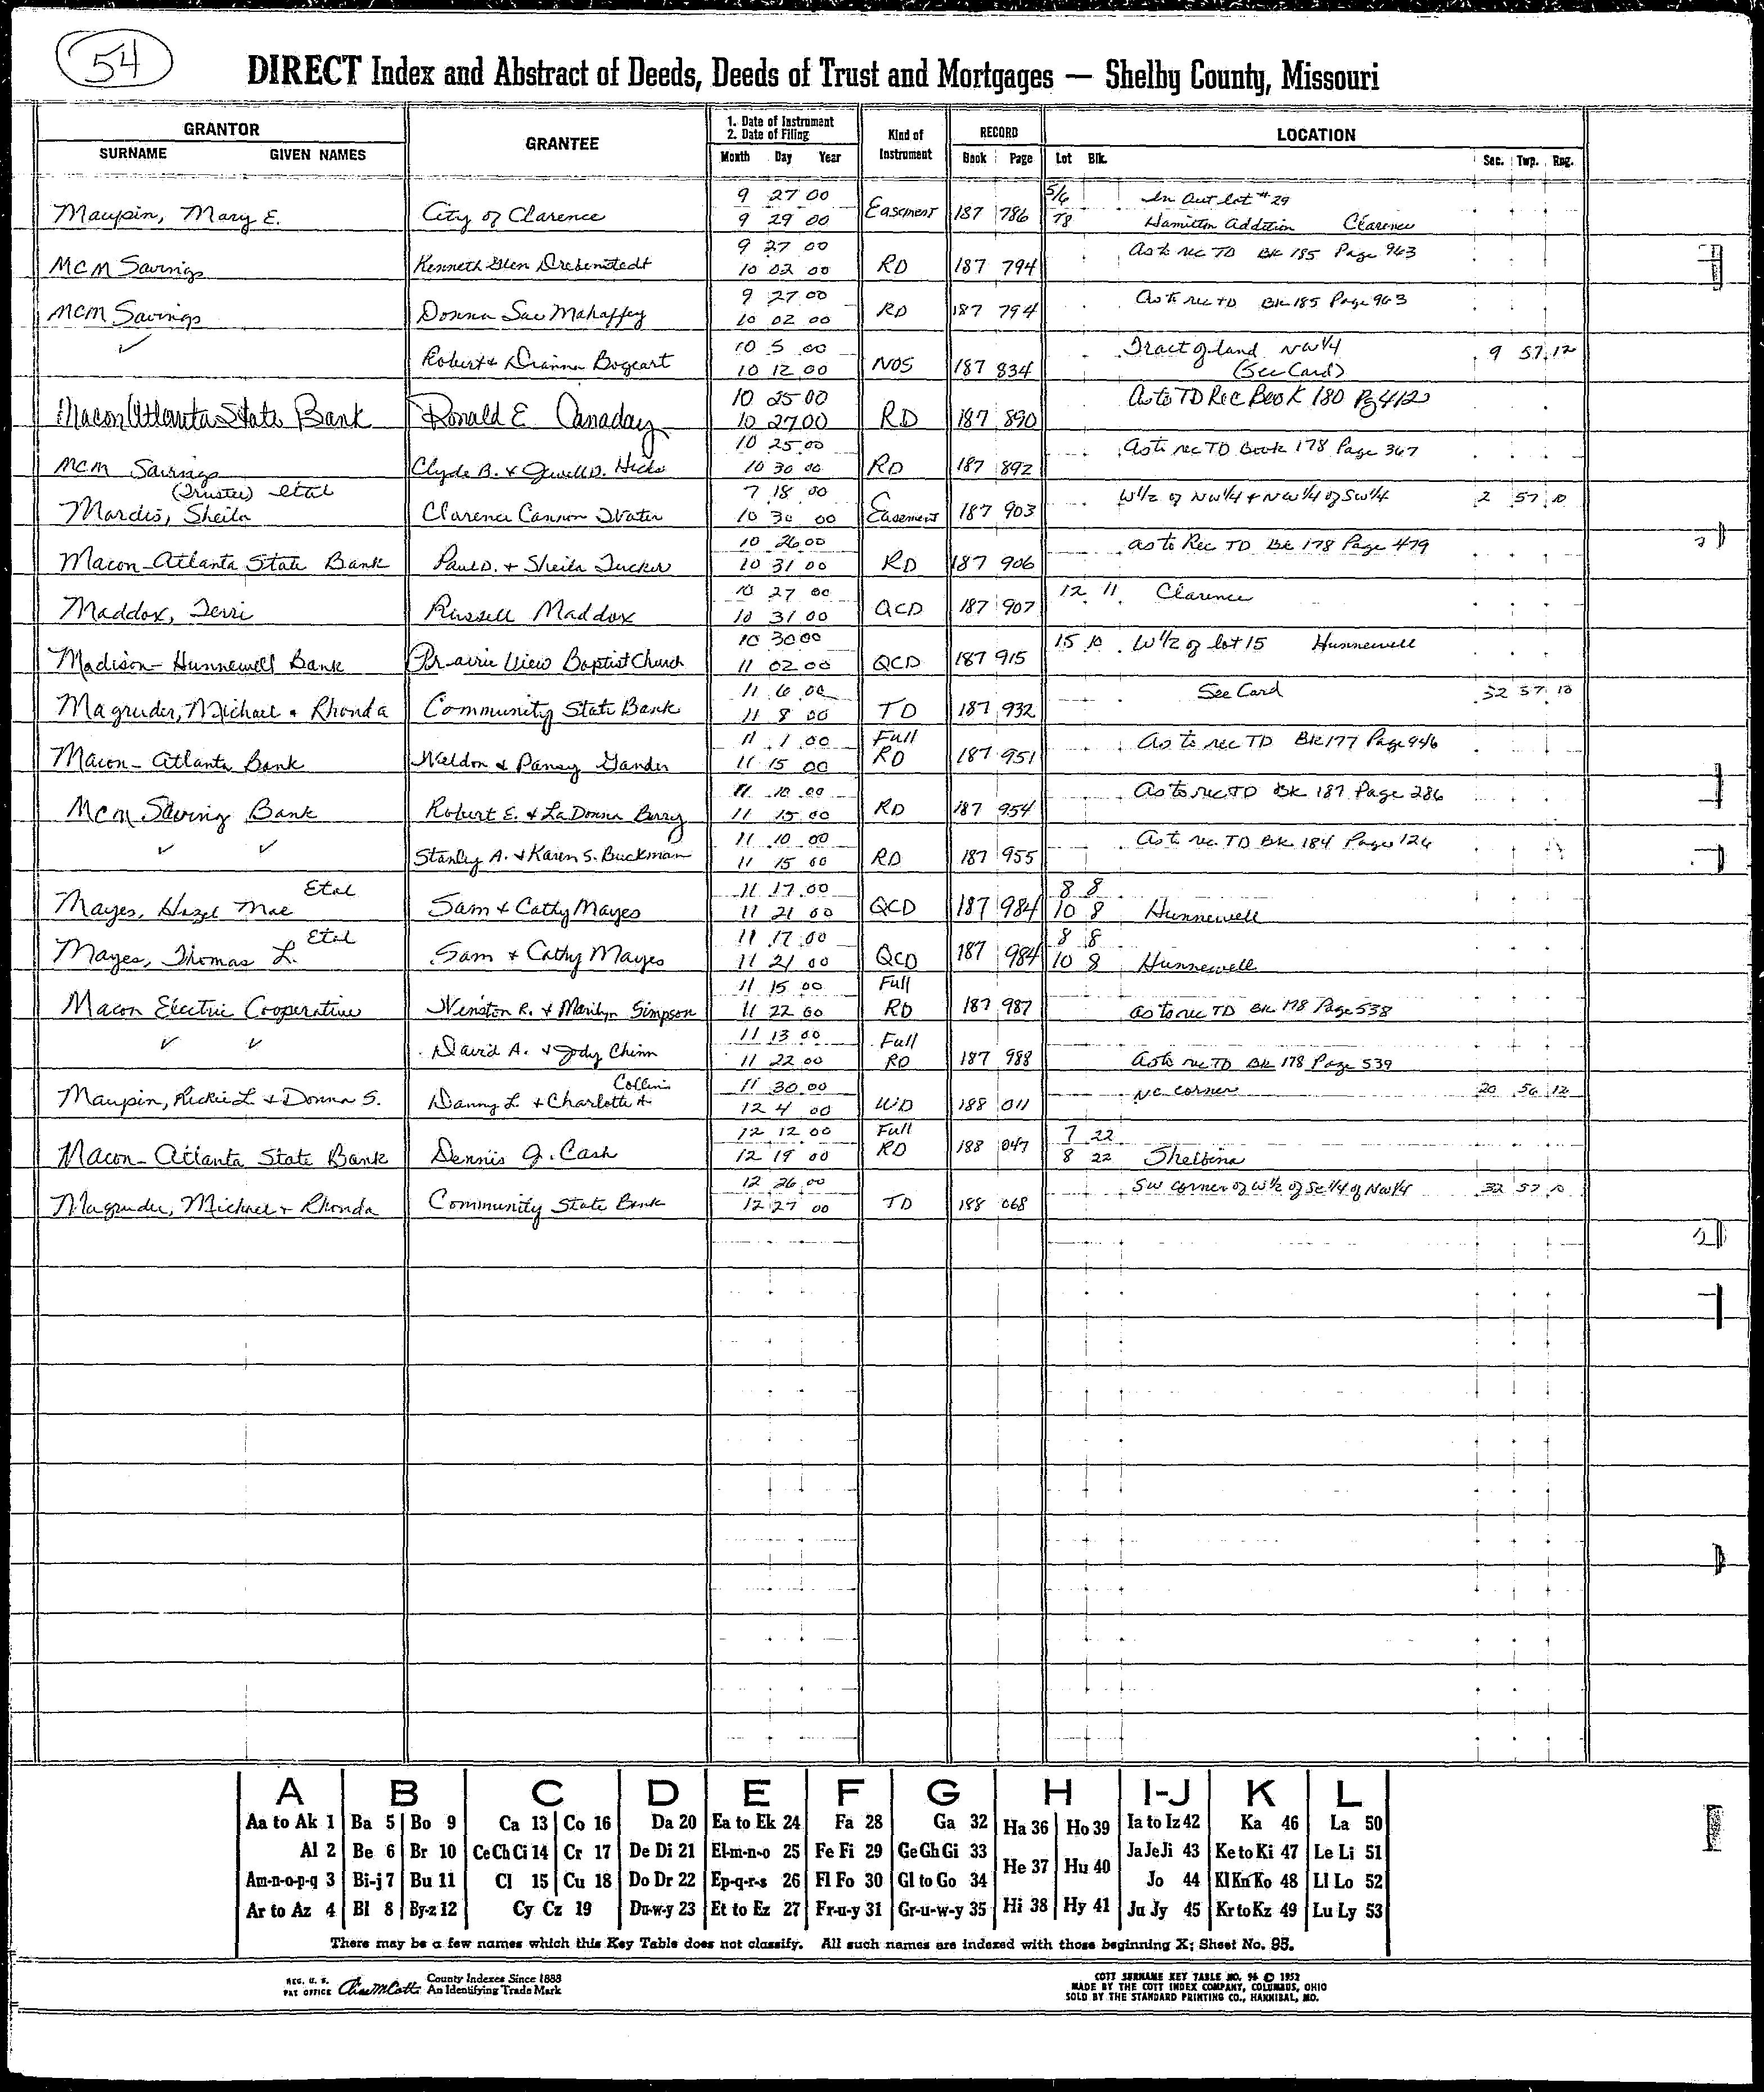 54
DIRECT Index and Abstract of Deeds, Deeds of Trust and Mortgages — Shelby County, Missouri
GRANTOR
SURNAME GIVEN NAMES
GRANTEE
1. Date of Instrument
2. Date of Filing
Month Day Year
Kind of Instrument
RECORD
Book Page
LOCATION
Lot Blk. Sec. Twp. Rng.
9 27 00 5/6 In Out lot #29
Maupin, Mary E. City of Clarence 9 29 00 Easement 187 786 78 Hamilton Addition Clarence
9 27 00 As to rec TD Bk 185 Page 963
MCM Savings Kenneth Glen Drebenstedt 10 02 00 RD 187 794
9 27 00 As to rec TD Bk 185 Page 963
MCM Savings Donna Sue Mahaffey 10 02 00 RD 187 794
✓ 10 5 00 Tract of land NW 1/4 9 57 12
Robert & Dianna Bogeart 10 12 00 NOS 187 834 (See Card)
10 25 00 As to TD Rec Book 180 Pg 412
Macon Atlanta State Bank Ronald E Canaday 10 27 00 RD 187 890
10 25 00 As to rec TD Book 178 Page 367
MCM Savings Clyde B. & Jewell D. Hicks 10 30 00 RD 187 892
(Trustee) etal 7 18 00 W 1/2 of NW 1/4 & NW 1/4 of SW 1/4 2 57 10
Mardis, Sheila Clarence Cannon Water 10 30 00 Easement 187 903
10 26 00 as to Rec TD Bk 178 Page 479
Macon-Atlanta State Bank Paul D. & Sheila Tucker 10 31 00 RD 187 906
10 27 00 12 11 Clarence
Maddox, Terri Russell Maddox 10 31 00 QCD 187 907
10 30 00 15 10 W 1/2 of lot 15 Hunnewell
Madison-Hunnewell Bank Prairie View Baptist Church 11 02 00 QCD 187 915
11 6 00 See Card 32 57 10
Magruder, Michael & Rhonda Community State Bank 11 8 00 TD 187 932
11 1 00 Full As to rec TD Bk 177 Page 946
Macon-Atlanta Bank Weldon & Pansy Gander 11 15 00 RD 187 951
11 10 00 As to rec TD Bk 187 Page 286
MCM Saving Bank Robert E. & LaDonna Berry 11 15 00 RD 187 954
✓ ✓ 11 10 00 As to rec. TD Bk 184 Page 126
Stanley A. & Karen S. Buckman 11 15 00 RD 187 955
Etal 11 17 00 8 8
Mayes, Hazel Mae Sam & Cathy Mayes 11 21 00 QCD 187 984 10 8 Hunnewell
Etal 11 17 00 8 8
Mayes, Thomas L. Sam & Cathy Mayes 11 21 00 QCD 187 984 10 8 Hunnewell
11 15 00 Full
Macon Electric Cooperative Winston R. & Marilyn Simpson 11 22 00 RD 187 987 as to rec TD Bk 178 Page 538
✓ ✓ 11 13 00 Full
David A. & Jody Chinn 11 22 00 RD 187 988 As to rec TD Bk 178 Page 539
Collins 11 30 00 NE corner 20 56 12
Maupin, Rickie L & Donna S. Danny L. & Charlotte A 12 4 00 WD 188 011
12 12 00 Full 7 22
Macon-Atlanta State Bank Dennis J. Cash 12 19 00 RD 188 047 8 22 Shelbina
12 26 00 SW corner of W 1/2 of SE 1/4 of NW 1/4 32 57 10
Magruder, Michael & Rhonda Community State Bank 12 27 00 TD 188 068
A B C D E F G H I-J K L
Aa to Ak 1 Ba 5 Bo 9 Ca 13 Co 16 Da 20 Ea to Ek 24 Fa 28 Ga 32 Ha 36 Ho 39 Ia to Iz 42 Ka 46 La 50
Al 2 Be 6 Br 10 Ce Ch Ci 14 Cr 17 De Di 21 El-m-n-o 25 Fe Fi 29 Ge Gh Gi 33 He 37 Hu 40 Ja Je Ji 43 Ke to Ki 47 Le Li 51
Am-n-o-p-q 3 Bi-j 7 Bu 11 Cl 15 Cu 18 Do Dr 22 Ep-q-r-s 26 Fl Fo 30 Gl to Go 34 Jo 44 Kl Kn Ko 48 Ll Lo 52
Ar to Az 4 Bl 8 By-z 12 Cy Cz 19 Du-w-y 23 Et to Ez 27 Fr-u-y 31 Gr-u-w-y 35 Hi 38 Hy 41 Ju Jy 45 Kr to Kz 49 Lu Ly 53
There may be a few names which this Key Table does not classify. All such names are indexed with those beginning X; Sheet No. 95.
REG. U. S. PAT OFFICE County Indexes Since 1888
An Identifying Trade Mark
COTT SURNAME KEY TABLE NO. 96 © 1952
MADE BY THE COTT INDEX COMPANY, COLUMBUS, OHIO
SOLD BY THE STANDARD PRINTING CO., HANNIBAL, MO.